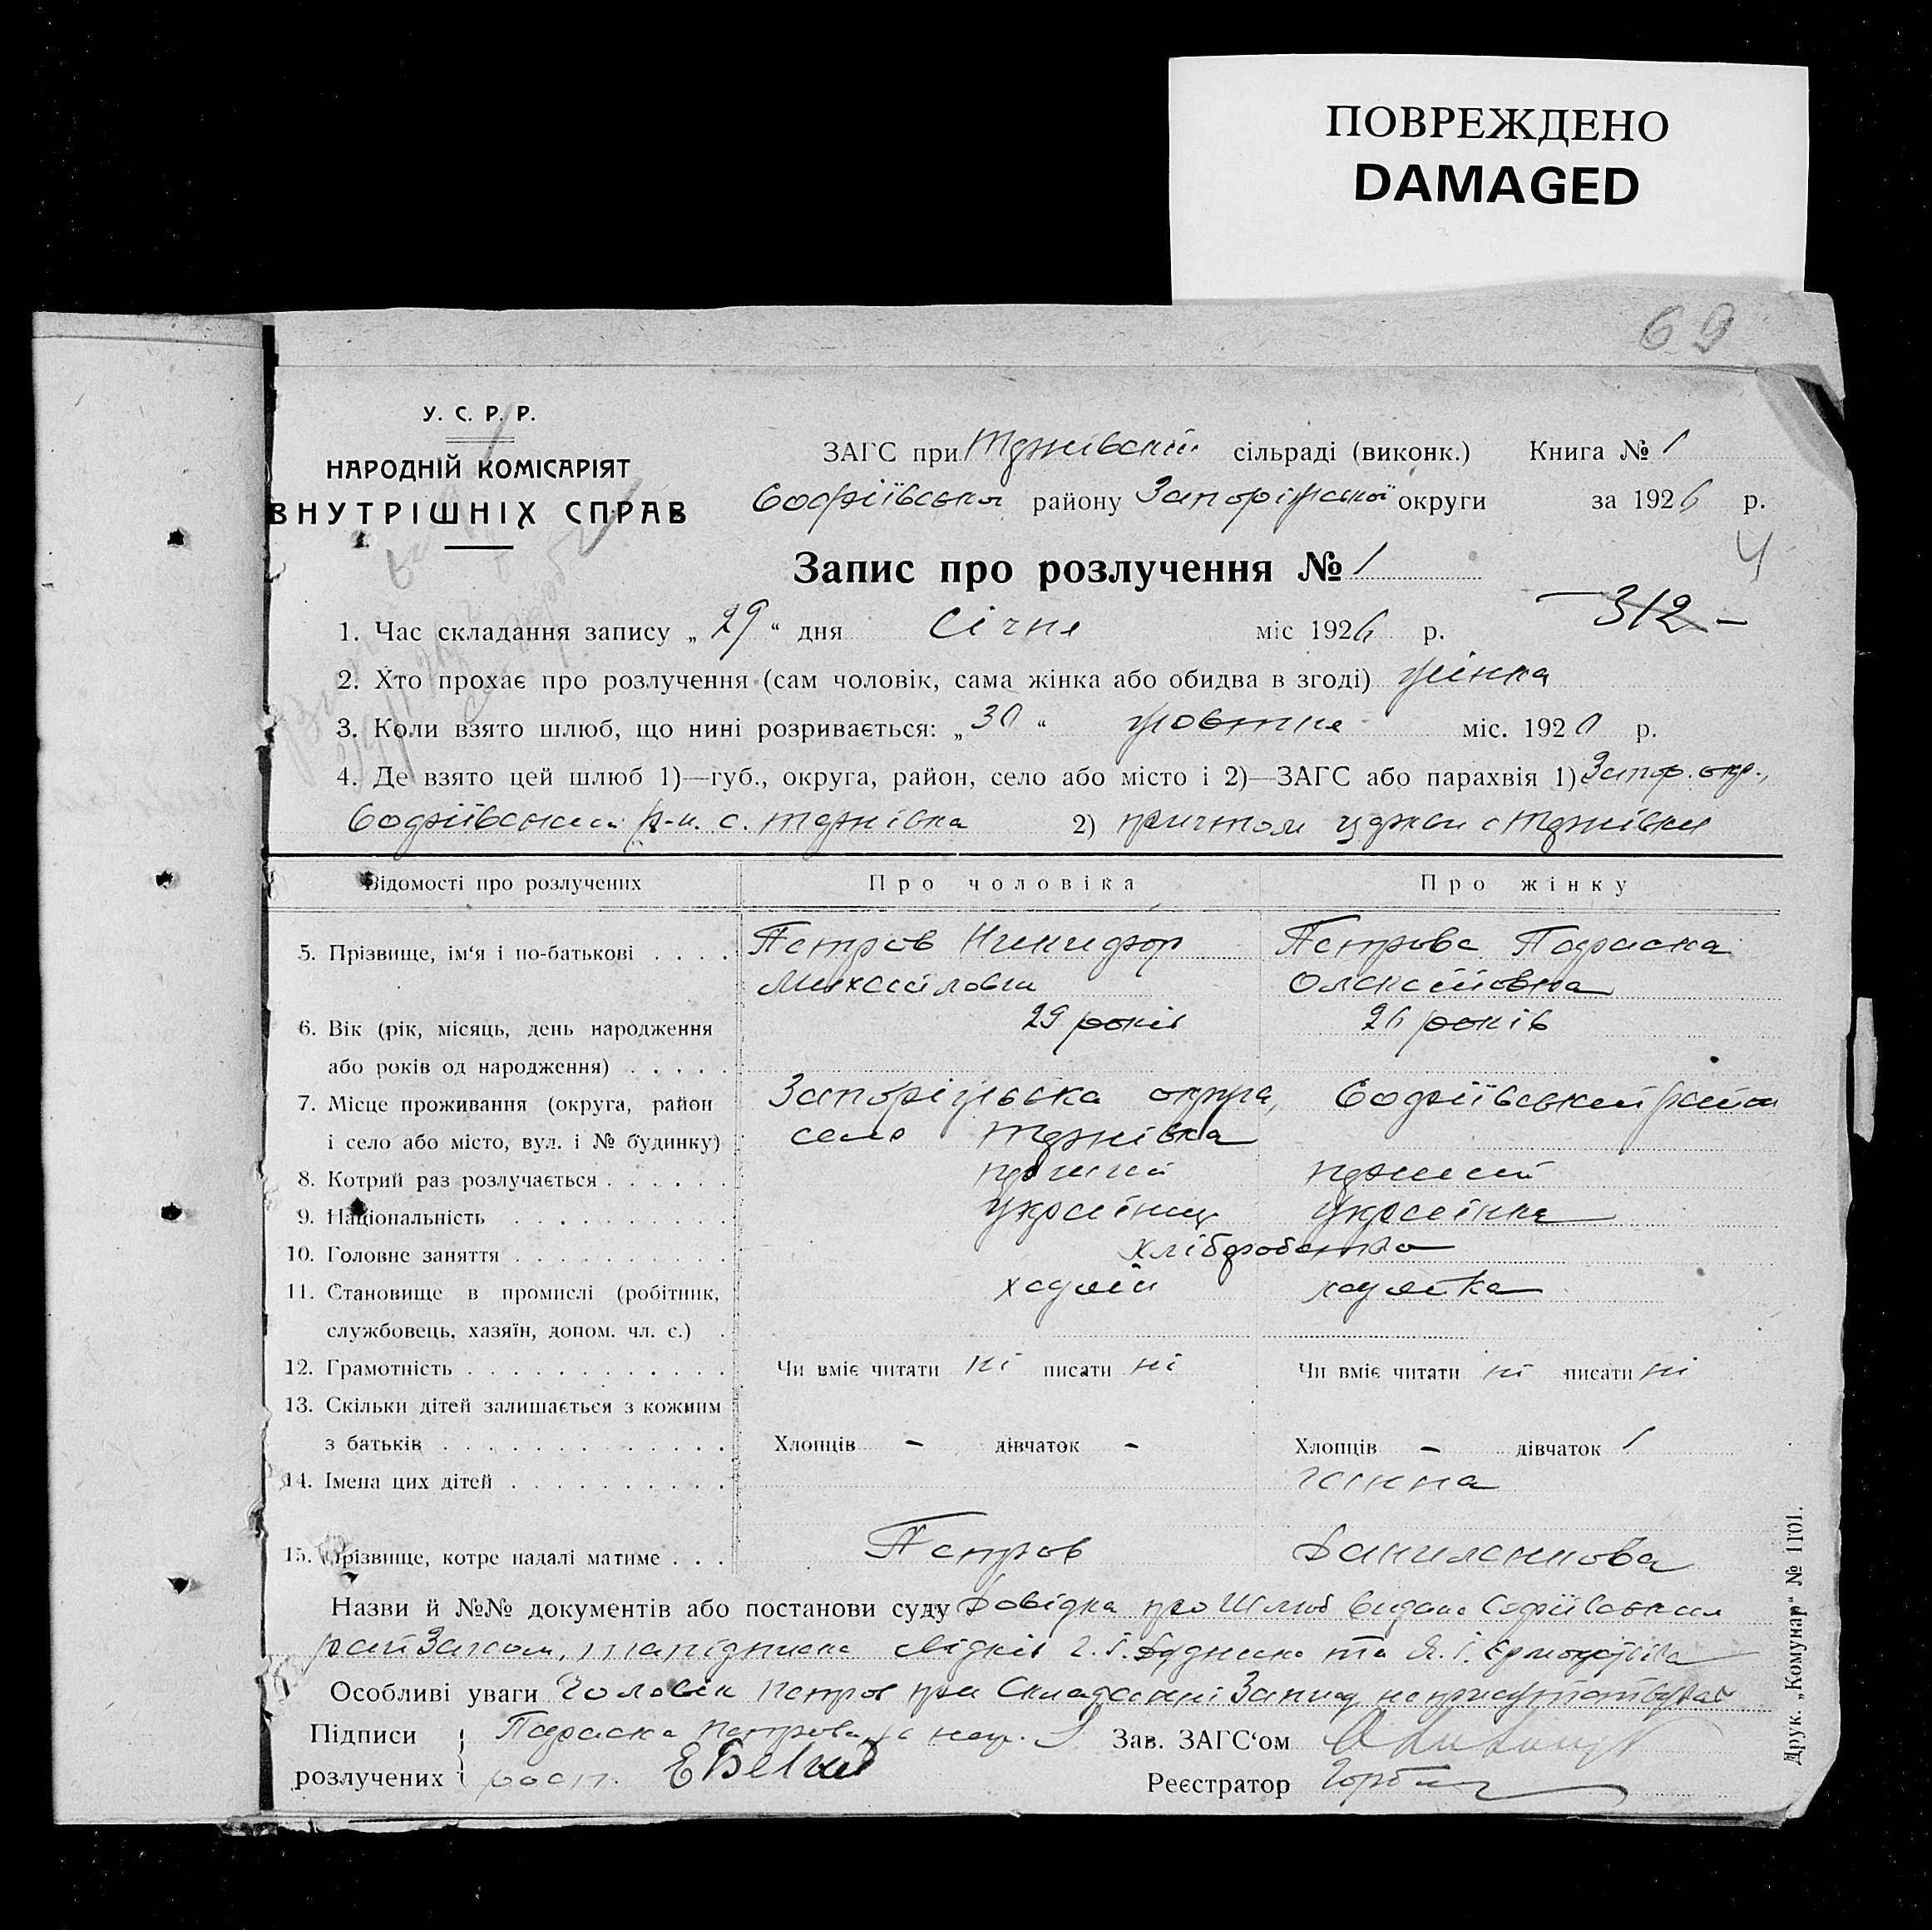 ПОВРЕЖДЕНО
DAMAGED
69
У. С. Р. Р.
НАРОДНІЙ КОМІСАРІЯТ
ВНУТРІШНІХ СПРАВ
ЗАГС при сільраді (виконк.) Книга № 1
Софіївськ району Запоріжської округи за 1926 р.
4
Запис про розлучення № 1
312
1. Час складання запису „ 29 “ дня Січня міс 1926 р.
2. Хто прохає про розлучення (сам чоловік, сама жінка або обидва в згоді) жінка
3. Коли взято шлюб, що нині розривається: „30“ жовтня міс. 1920 р.
4. Де взято цей шлюб 1)—губ., округа, район, село або місто і 2)—ЗАГС або парахвія 1) Запор. окр.,
Софіївський р-н. с. 2) причтом церкви с
Відомості про розлучених Про чоловіка Про жінку
5. Прізвище, ім‘я і по-батькові . . . . Петров Никифор Петрова Параска
Михайлович Олексіївна
6. Вік (рік, місяць, день народження 29 років 26 років
або років од народження) . . . . .
7. Місце проживання (округа, район Запоріжська округа, Софіївський район
і село або місто, вул. і № будинку) село
8. Котрий раз розлучається . . . . . . перший перший
9. Національність . . . . . . . . . . українець українка
10. Головне заняття . . . . . . . . . . хліборобство
11. Становище в промислі (робітник,
службовець, хазяїн, допом. чл. с.) .
12. Грамотність . . . . . . . . . . . . Чи вміє читати ні писати ні Чи вміє читати ні писати ні
13. Скільки дітей залишається з кожним
з батьків . . . . . . . . . . . . . Хлопців - дівчаток - Хлопців - дівчаток 1
14. Імена цих дітей . . . . . . . . . . Ганна
15. Прізвище, котре надалі матиме . . . Петров Даниленкова
Назви й №№ документів або постанови суду Довідка про Шлюб видана Софіївським
рай Загсом, та підписка свідків та
Особливі уваги Чоловік Петров при Складанні Запису не присутствував
Підписи Параска Петрова Зав. ЗАГС‘ом
розлучених росп. Реєстратор
Друк. „Комунар“ № 1101.